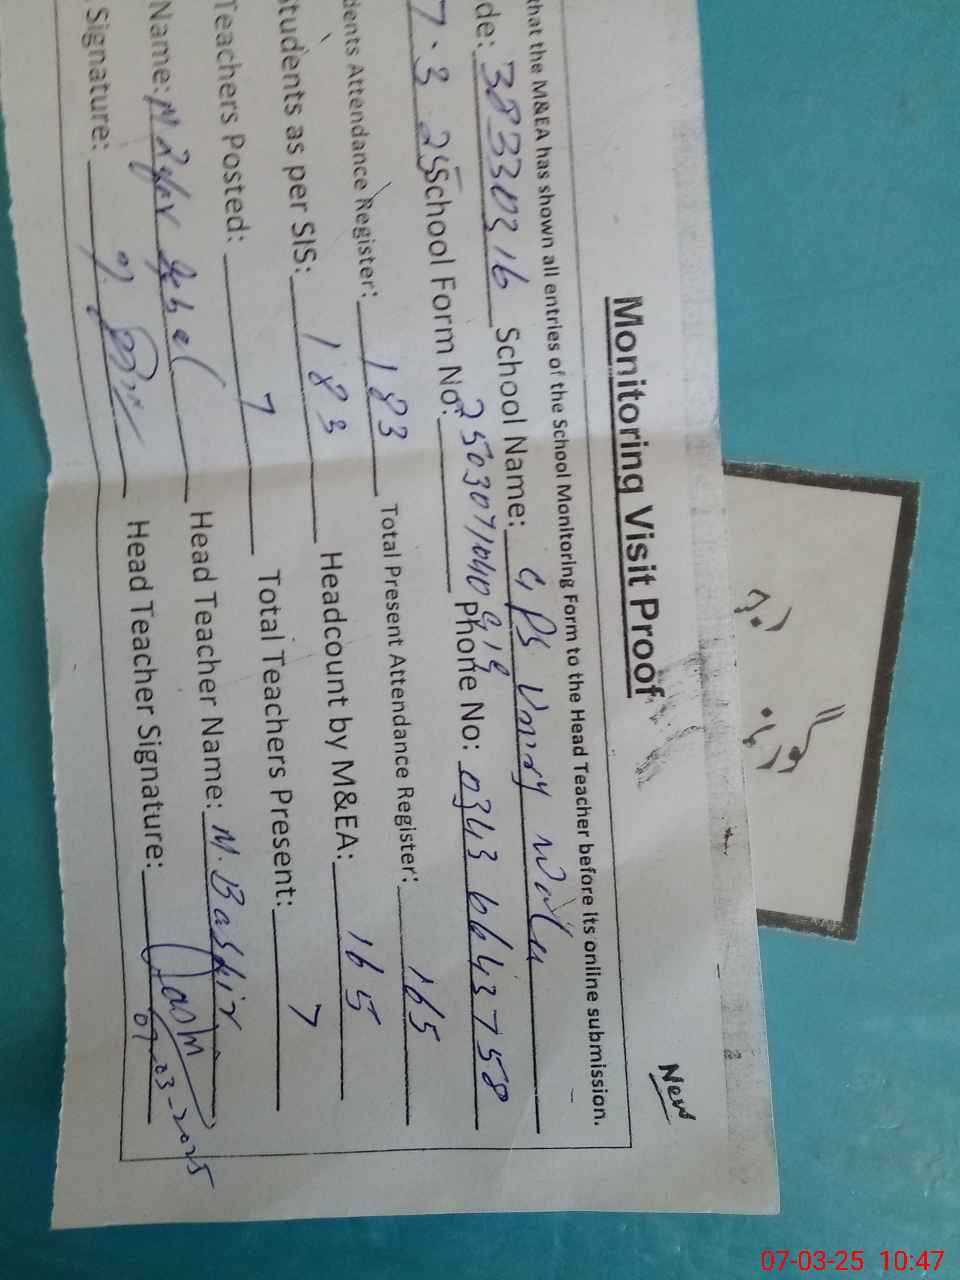 New
Monitoring Visit Proof
that the M&EA has shown all entries of the School Monitoring Form to the Head Teacher before its online submission.
de: 38330216 School Name: GPS
7.3 25 School Form No: Phone No: 0343 6643758
dents Attendance Register: 183 Total Present Attendance Register: 165
Students as per SIS: 183 Headcount by M&EA: 165
Teachers Posted: 7 Total Teachers Present: 7
Name: Head Teacher Name: M. Bashir
Signature: Head Teacher Signature:
07-03-2025
07-03-25 10:47